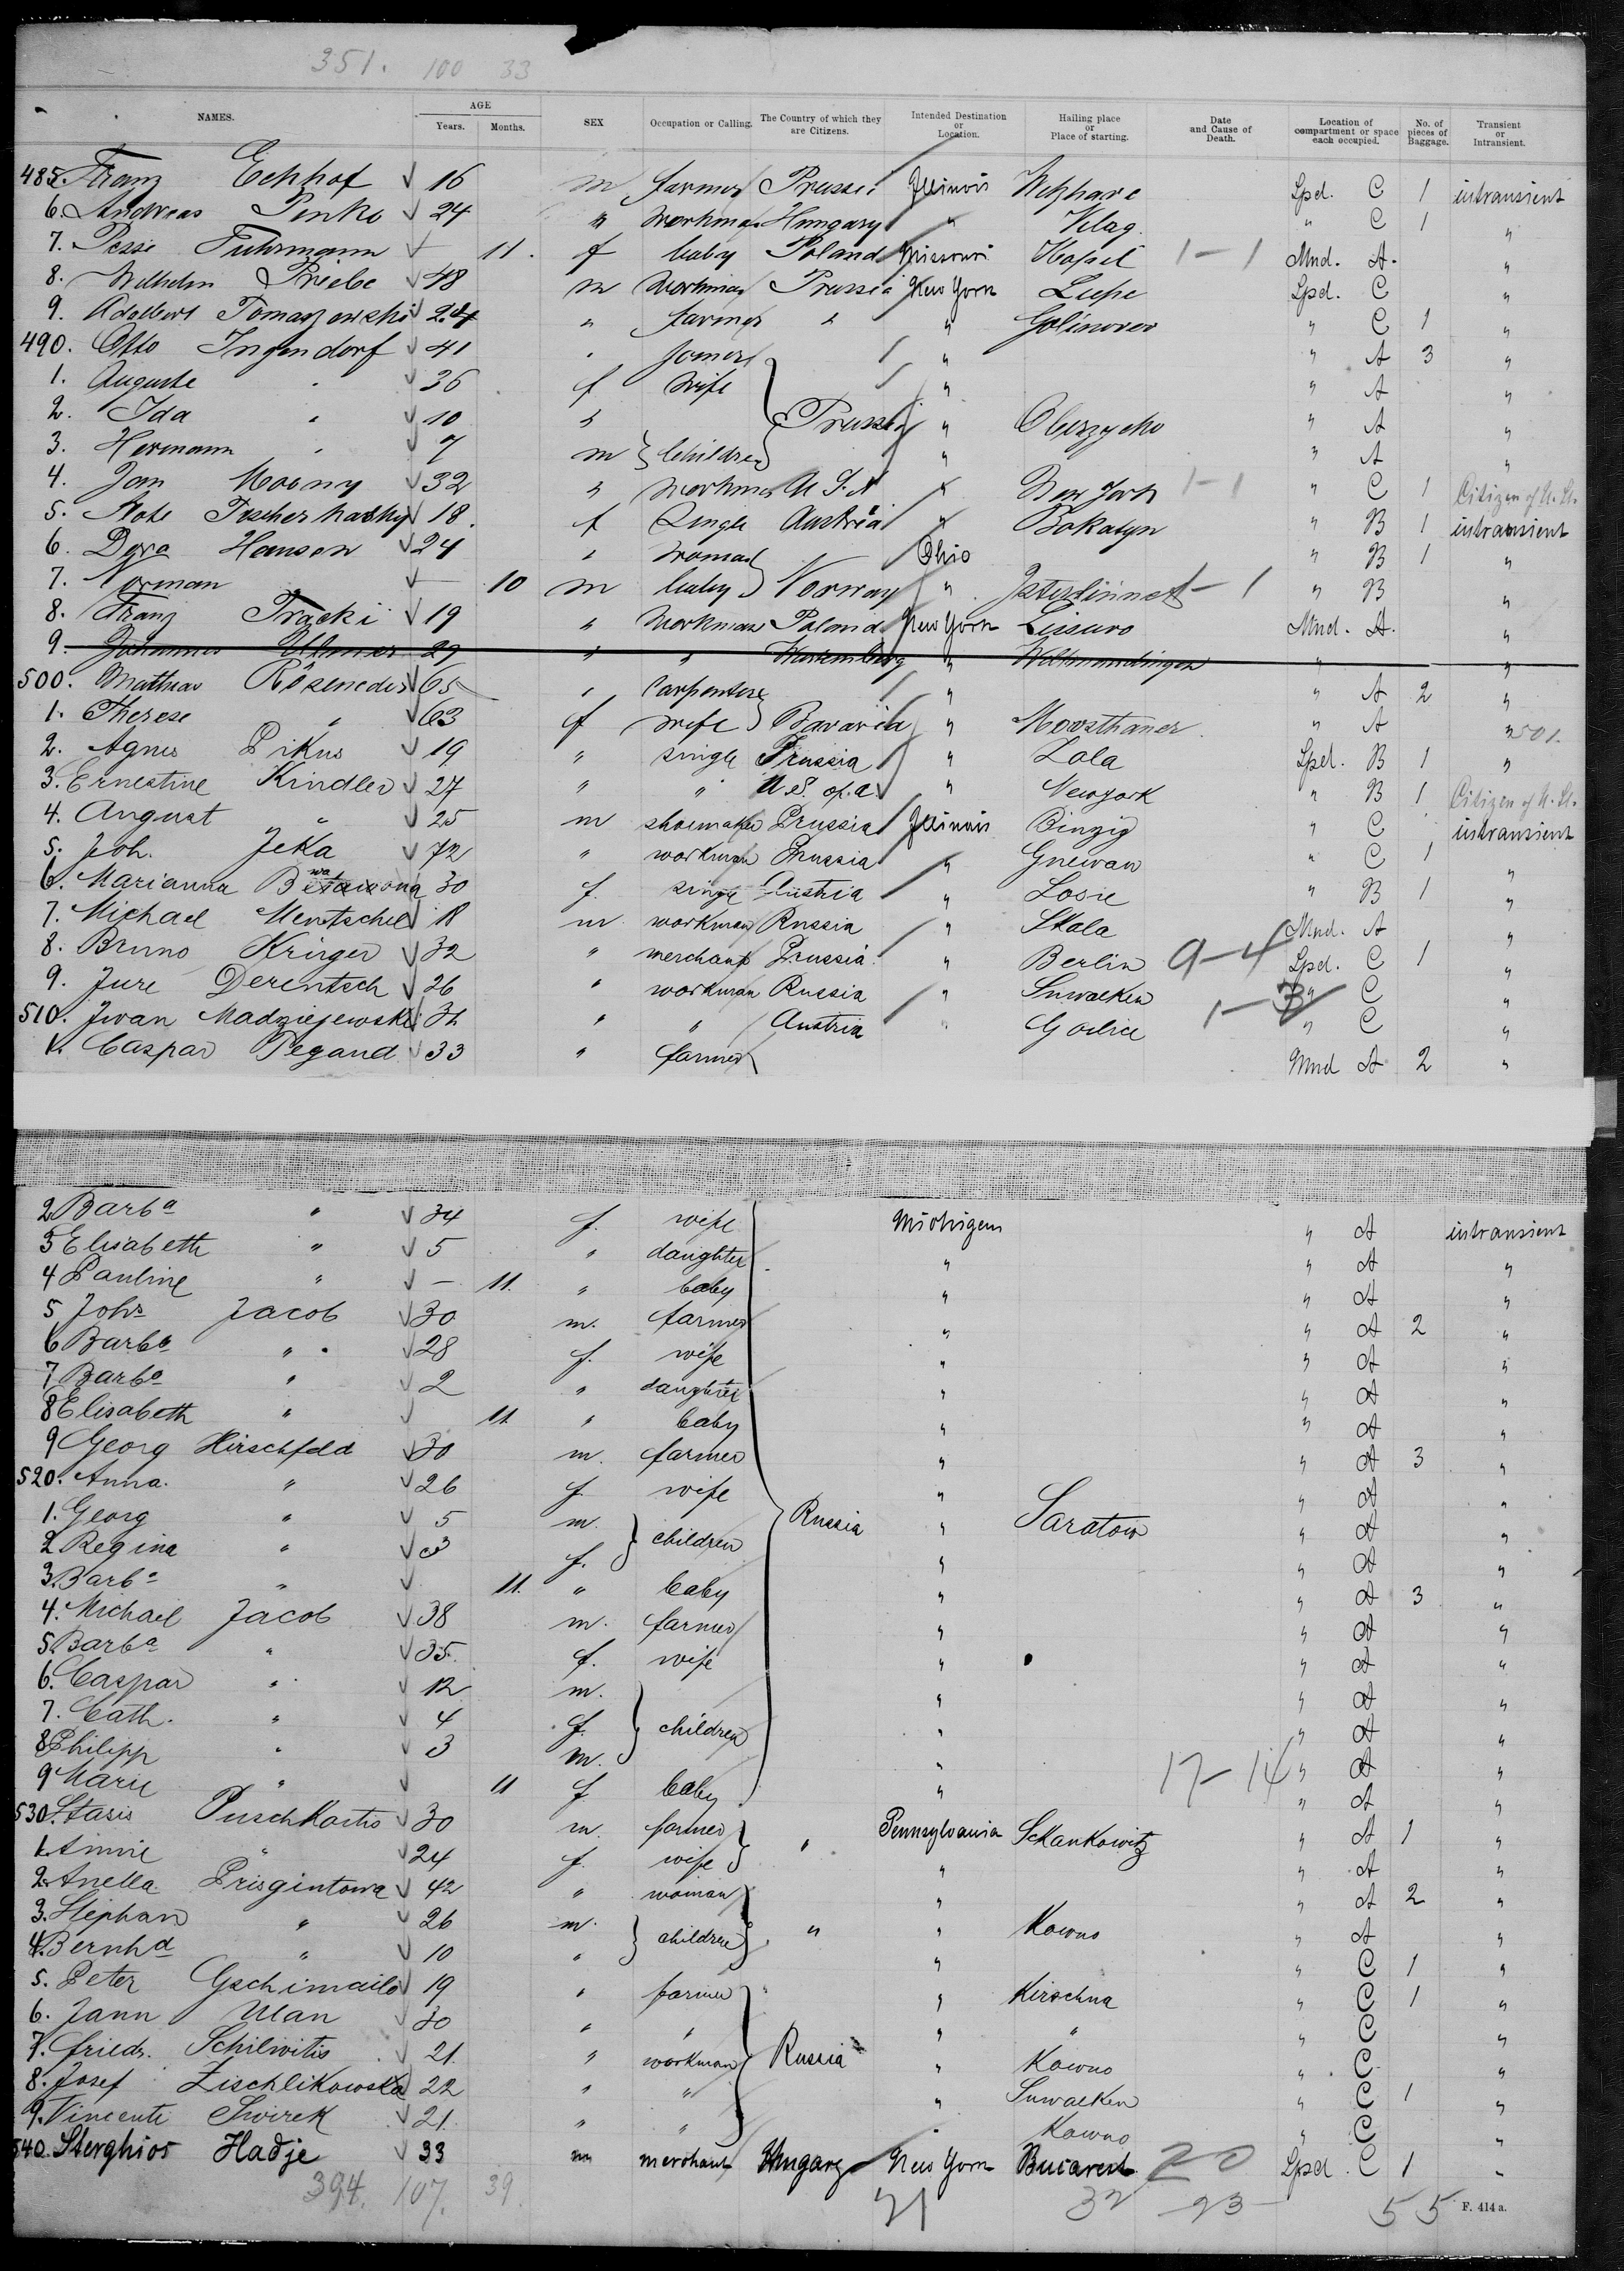 351. 100 33
NAMES. AGE Years. Months. SEX Occupation or Calling. The Country of which they are Citizens. Intended Destination or Location. Hailing place or Place of starting. Date and Cause of Death. Location of compartment or space each occupied. No. of pieces of Baggage. Transient or Intransient.
485. Franz √ 16 m farmer Prussia Illinois Spd. C 1 intransient
6. Andreas Penko √ 24 " workman Hungary " " C 1 "
7. Pesse Fuhrmann √ — 11. f baby Poland Missouri 1-1 Mnd. A. "
8. Wilhelm Priebe √ 48 m workman Prussia New York Lupe Spd. C "
9. Adalbert Tomaszewski √ 24 " farmer " " " C 1 "
490. Otto Ingendorf √ 41 " " " A 3 "
1. Auguste " √ 36 f wife " " A "
2. Ida " √ 10 " Prussia " " A "
3. Hermann " √ 7 m } children " " A "
4. Jan Moony √ 32 " workman U.S.A " New York 1-1 " C 1 Citizen of U. St.
5. √ 18. f single Austria " " B 1 intransient
6. Hansen √ 24 " woman Ohio " B 1 "
7. Norman √ — 10 m baby } Norway " 1-1 " B "
8. Franz √ 19 " workman Poland New York Lissuro Mnd. A. "
9. Johannes Ullmer 29 " " Wurtemberg " " "
500. Mathias √ 65 " carpenter " " A 2 "
1. Therese " √ 63 f wife } Bavaria " " A " 501.
2. Agnes Pikus √ 19 " single Prussia " Lola Spd. B 1 "
3. Ernestine Kindler √ 27 " " U.S. of.a. " Newyork " B 1 Citizen of U. St.
4. August " √ 25 m shoemaker Prussia Illinois Binzig " C intransient
5. Joh. Jeka √ 72 " workman Prussia " Gnewan " C 1 "
6. Marianna 30 f. single Austria " Losie " B 1 "
7. Michael Mentschel √ 18 m workman Russia " Skala Mnd. A "
8. Bruno Krüger √ 32 " merchant Prussia. " Berlin 9-4 Spd. C 1 "
9. Jure Derentsch √ 26 " workman Russia " Suwalken " C "
510. Iwan Madziejewski √ " " Austria " 1- " C "
1. Caspar Pegand √ 33 " farmer Mnd A 2 "
2 Barba " √ 34 f. wife Michigan " A intransient
3 Elisabeth " √ 5 " daughter " " A "
4 Pauline " √ — 11. " baby " " A "
5 Johs Jacob √ 30 m. farmer " " A 2 "
6 Barba " √ 28 f. wife " " A "
7 Barba " √ 2 " daughter " " A "
8 Elisabeth " √ 11. " baby " " A "
9 Georg Hirschfeld √ 30 m. farmer " " A 3 "
520. Anna. " √ 26 f. wife " " A "
1. Georg " √ 5 m. } children Russia " Saratow " A "
2 Regina " √ 3 f. " " A "
3. Barba " √ 11. " baby " " A 3 "
4. Michael Jacob √ 38 m. farmer " " A "
5. Barba " √ 35. f. wife " " A "
6. Caspar " √ 12 m. " " A "
7. Cath. " √ 4 f. } children " " A "
8 Philipp " √ 3 m. " " A "
9 Marie " √ 11 f. baby " 17-14 " A "
530. Stasis √ 30 m. farmer } " Pennsylvania Sckankowitz " A 1 "
1. Annie " √ 24 f. wife " " A "
2. Anella Prisgintowa √ 42 " woman " " A 2 "
3. Stephan " √ 26 m. } children } " " Kowno " A "
4. Bernhd " √ 10 " " " C 1 "
5. Peter Gschimailo √ 19 " farmer " Kirschna " C 1 "
6. Jann Ulan √ 30 " " " " " C "
7. Friedr. Schilwitis √ 21. " workman Russia " Kowno " C "
8. Josef Zischlikowska √ 22 " " " Suwalken " C 1 "
9. Vincenti Swirek √ 21. " " " Kowno " C "
540. Sterghios Hadje √ 33 m merchant Hungary New York Bucarest 20 Spd. C 1 "
394. 107. 39. 21 32 23 55 F. 414 a.